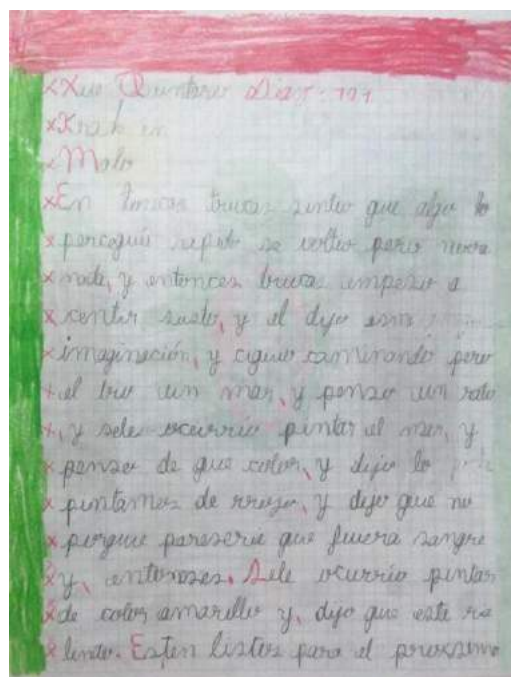 Quintero Diaz. 121
x Malo
x En tonces brucas sintio que algo lo
x perceguia se voltio pero
x nada, y entonces brucas empeso a
x centir y el dijo
x imaginación, y ciguio caminando pero
x el un mar, y penso un rato
x, y sele ocurrio pintar el mar, y
x penso de que color, y dijo lo
x pintamos de rrojo, y dijo que no
x porque pareserie que fuera sangre
x y, entonses. Sele ocurrio pintar
x de color amarillo y, dijo que este
x lindo. Esten listos para el proxsimo